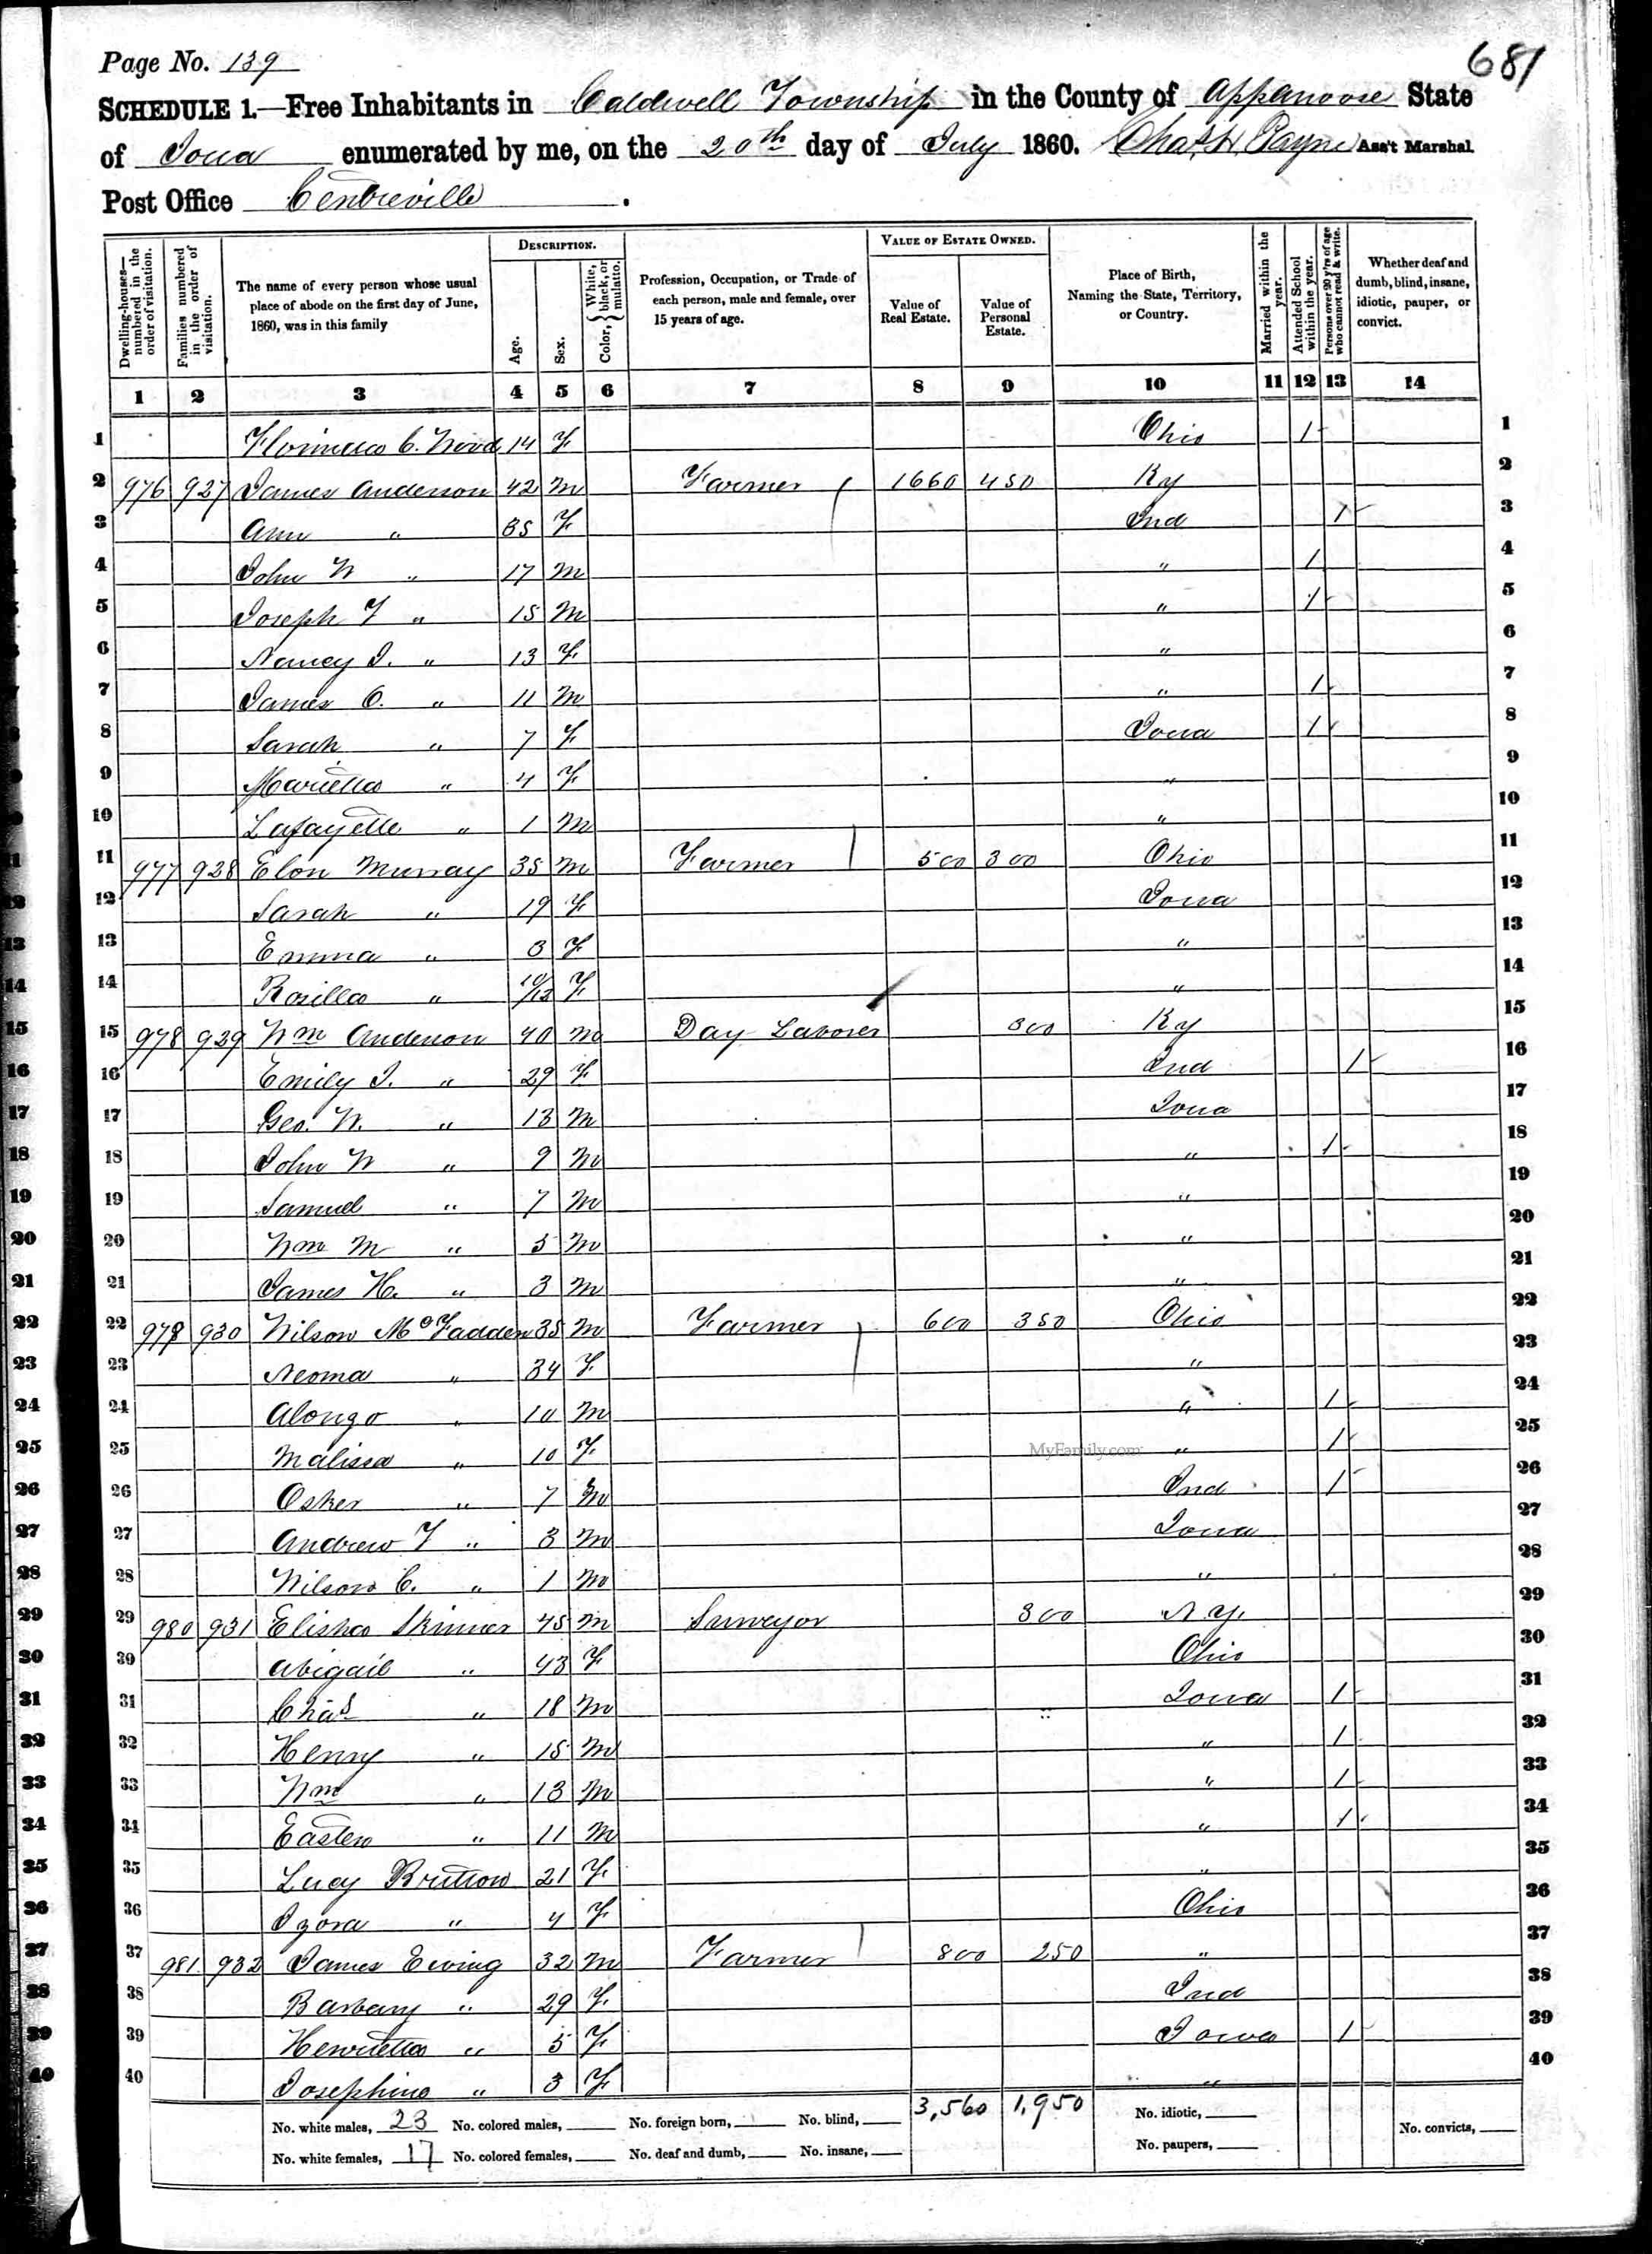 Page No. 139
681
SCHEDULE 1.—Free Inhabitants in Caldwell Township in the County of Appanoose State
of Iowa enumerated by me, on the 20th day of July 1860. Chas. H. Payne Ass't Marshal
Post Office Centreville.
Dwelling-houses—numbered in the order of visitation. Families numbered in the order of visitation. The name of every person whose usual place of abode on the first day of June, 1860, was in this family DESCRIPTION. Age. Sex. Color, {White, black, or mulatto. Profession, Occupation, or Trade of each person, male and female, over 15 years of age. VALUE OF ESTATE OWNED. Value of Real Estate. Value of Personal Estate. Place of Birth, Naming the State, Territory, or Country. Married within the year. Attended School within the year. Persons over 20 y'rs of age who cannot read & write. Whether deaf and dumb, blind, insane, idiotic, pauper, or convict.
1 2 3 4 5 6 7 8 9 10 11 12 13 14
1 C. Wood 14 F Ohio 1 1
2 976 927 James Anderson 42 M Farmer 1660 450 Ky 2
3 Ann " 35 F Ind 1 3
4 John W " 17 M " 1 4
5 Joseph F " 15 M " 1 5
6 Nancy J. " 13 F " 6
7 James O. " 11 M " 1 7
8 Sarah " 7 F Iowa 1 8
9 Marietta " 4 F " 9
10 Lafayette " 1 M " 10
11 977 928 Elon Murray 35 M Farmer 500 300 Ohio 11
12 Sarah " 19 F Iowa 12
13 Emma " 3 F " 13
14 Rosilla " 10/12 F " 14
15 978 929 Wm Anderson 40 M Day Laborer 300 Ky 15
16 Emily J. " 29 F Ind 1 16
17 Geo. W. " 13 M Iowa 17
18 John W " 9 M " 1 18
19 Samuel " 7 M " 19
20 Wm M " 5 M " 20
21 James H. " 3 M " 21
22 979 930 Wilson McFadden 35 M Farmer 600 350 Ohio 22
23 Neoma " 34 F " 23
24 Alonzo " 10 M " 1 24
25 Malissa " 10 F " 1 25
MyFamily.com
26 Osker " 7 M Ind 1 26
27 Andrew F " 3 M Iowa 27
28 Wilson C. " 1 M " 28
29 980 931 Elisha Skinner 45 M Surveyor 300 N.Y. 29
30 Abigail " 43 F Ohio 30
31 Chas " 18 M Iowa 1 31
32 Henry " 15 M " 1 32
33 Wm " 13 M " 1 33
34 " 11 M " 1 34
35 Lucy 21 F " 35
36 Izora " 4 F Ohio 36
37 981 932 James Ewing 32 M Farmer 800 250 " 37
38 Barbary " 29 F Ind 38
39 Henrietta " 5 F Iowa 1 39
40 Josephine " 3 F " 40
3,560 1,950
No. white males, 23 No. colored males, No. foreign born, No. blind, No. idiotic, No. convicts,
No. white females, 17 No. colored females, No. deaf and dumb, No. insane, No. paupers,